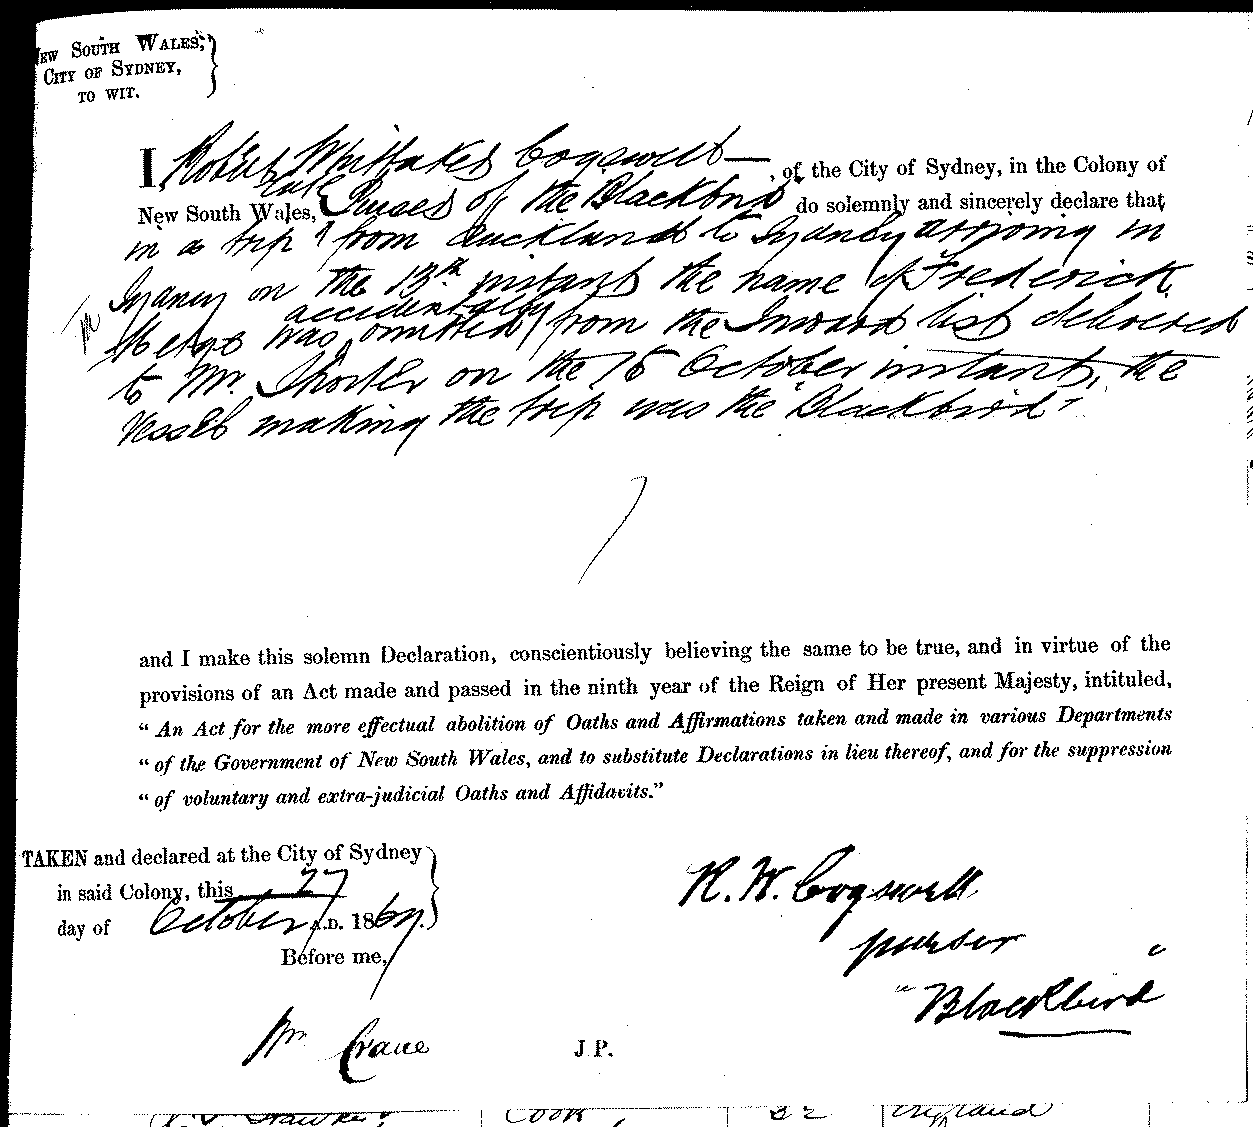 NEW SOUTH WALES,
CITY OF SYDNEY,
TO WIT.
I Robert Whittaker Cogswell — , of the City of Sydney, in the Colony of
late
New South Wales, Purser of the Blackbird do solemnly and sincerely declare that
in a trip from Auckland to Sydney arriving in
Sydney on the 13th instant the name of Frederick
accidentally
was omitted from the Inward list delivered
to Mr. Shorter on the 15 October instant, the
vessel making the trip was the "Blackbird"
and I make this solemn Declaration, conscientiously believing the same to be true, and in virtue of the
provisions of an Act made and passed in the ninth year of the Reign of Her present Majesty, intituled,
" An Act for the more effectual abolition of Oaths and Affirmations taken and made in various Departments
" of the Government of New South Wales, and to substitute Declarations in lieu thereof, and for the suppression
" of voluntary and extra-judicial Oaths and Affidavits."
TAKEN and declared at the City of Sydney
in said Colony, this 27
day of October A.D. 1867.
Before me,
R. W. Cogswell
purser
"Blackbird"
Wm Crane J P.
Cook 32 England